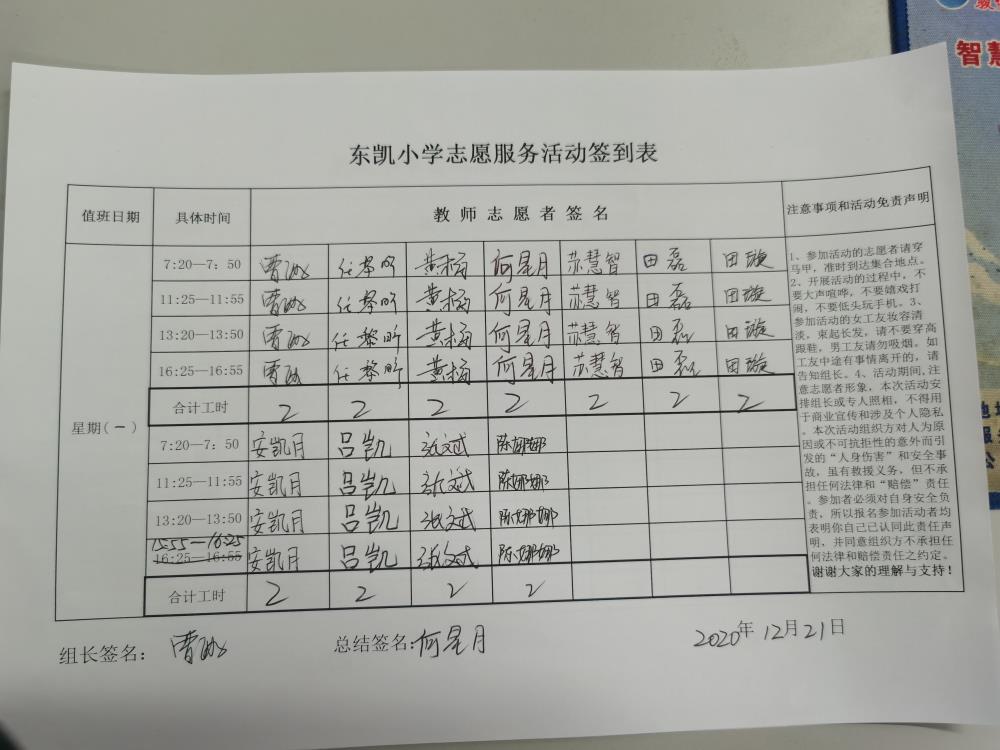 智慧
东凯小学志愿服务活动签到表
值班日期 具体时间 教师志愿者签名 注意事项和活动免责声明
7:20—7:50 黄杨 何星月 苏慧智 田磊 田璇
11:25—11:55 黄杨 何星月 苏慧智 田磊 田璇
13:20—13:50 任黎昕 黄杨 何星月 苏慧智 田磊 田璇
16:25—16:55 任黎昕 黄杨 何星月 苏慧智 田磊 田璇
合计工时 2 2 2 2 2 2 2
星期(一)
7:20—7:50 安凯月 吕凯 张文斌 陈娜娜
11:25—11:55 安凯月 吕凯 张文斌 陈娜娜
13:20—13:50 安凯月 吕凯 张文斌 陈娜娜
15:55—16:25
16:25—16:55 安凯月 吕凯 张文斌 陈娜娜
合计工时 2 2 2 2
1、参加活动的志愿者请穿
马甲,准时到达集合地点。
2、开展活动的过程中,不
要大声喧哗,不要嬉戏打
闹,不要低头玩手机。3、
参加活动的女工友妆容清
淡,束起长发,请不要穿高
跟鞋,男工友请勿吸烟。如
工友中途有事情离开的,请
告知组长。4、活动期间,注
意志愿者形象,本次活动安
排组长或专人照相,不得用
于商业宣传和涉及个人隐私
。本次活动组织方对人为原
因或不可抗拒性的意外而引
发的“人身伤害”和安全事
故,虽有救援义务,但不承
担任何法律和“赔偿”责任
。参加者必须对自身安全负
责,所以报名参加活动者均
表明你自己已认同此责任声
明,并同意组织方不承担任
何法律和赔偿责任之约定。
谢谢大家的理解与支持!
组长签名: 总结签名:何星月 2020年12月21日